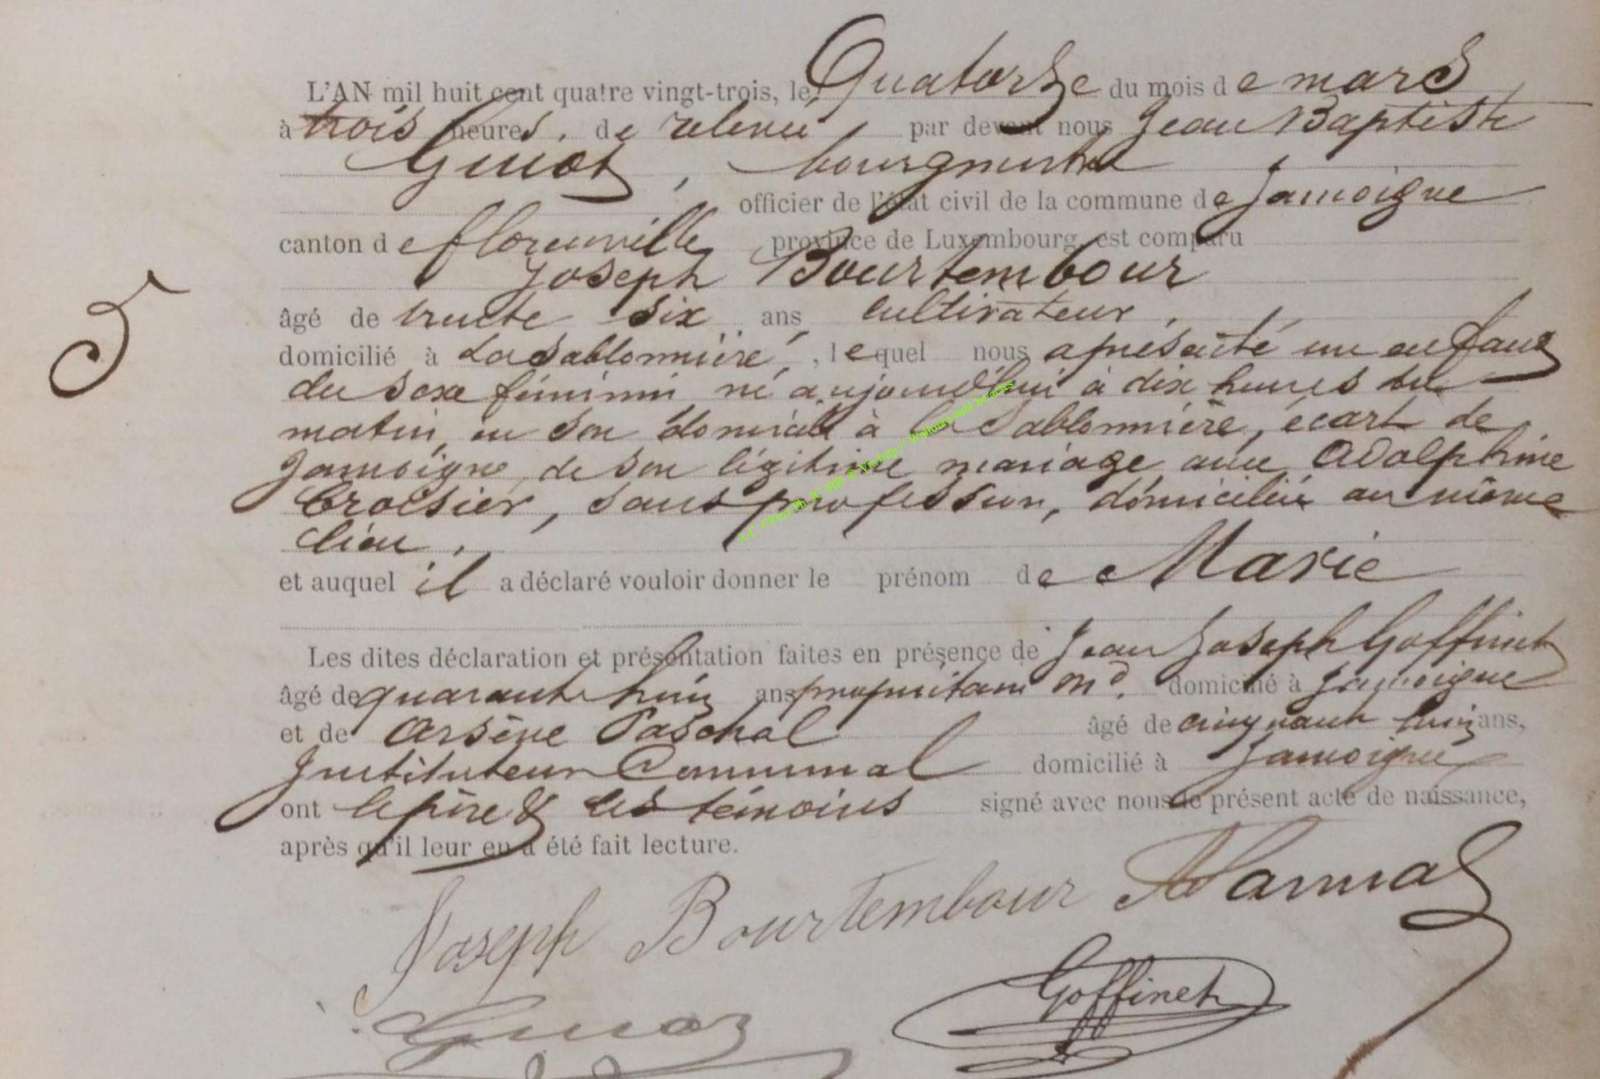 L'AN mil huit cent quatre vingt-trois, le Quatorze du mois de mars
à trois heures de relevée par devant nous Jean Baptiste
Guiot, bourgmestre
officier de l'état civil de la commune de Jamoigne
canton de florenville province de Luxembourg, est comparu
Joseph Bourtembour
âgé de trente six ans cultivateur,
domicilié à La Sablonnière, lequel nous a présenté un enfant
5
du sexe féminin né aujourd'hui à dix heures du
matin, en son domicile à la Sablonnière, écart de
Jamoigne, de son légitime mariage avec Adolphine
Croisier, sans profession, domiciliée au même
lieu.
et auquel il a déclaré vouloir donner le prénom de Marie
Les dites déclaration et présentation faites en présence de Jean Joseph Goffinet
âgé de quarante huit ans propriétaire md. domicilié à Jamoigne
et de Arsène Paschal âgé de cinquante huit ans,
Instituteur Communal domicilié à Jamoigne
ont le père & les témoins signé avec nous le présent acte de naissance,
après qu'il leur en a été fait lecture.
Joseph Bourtembour
Goffinet
Guiot